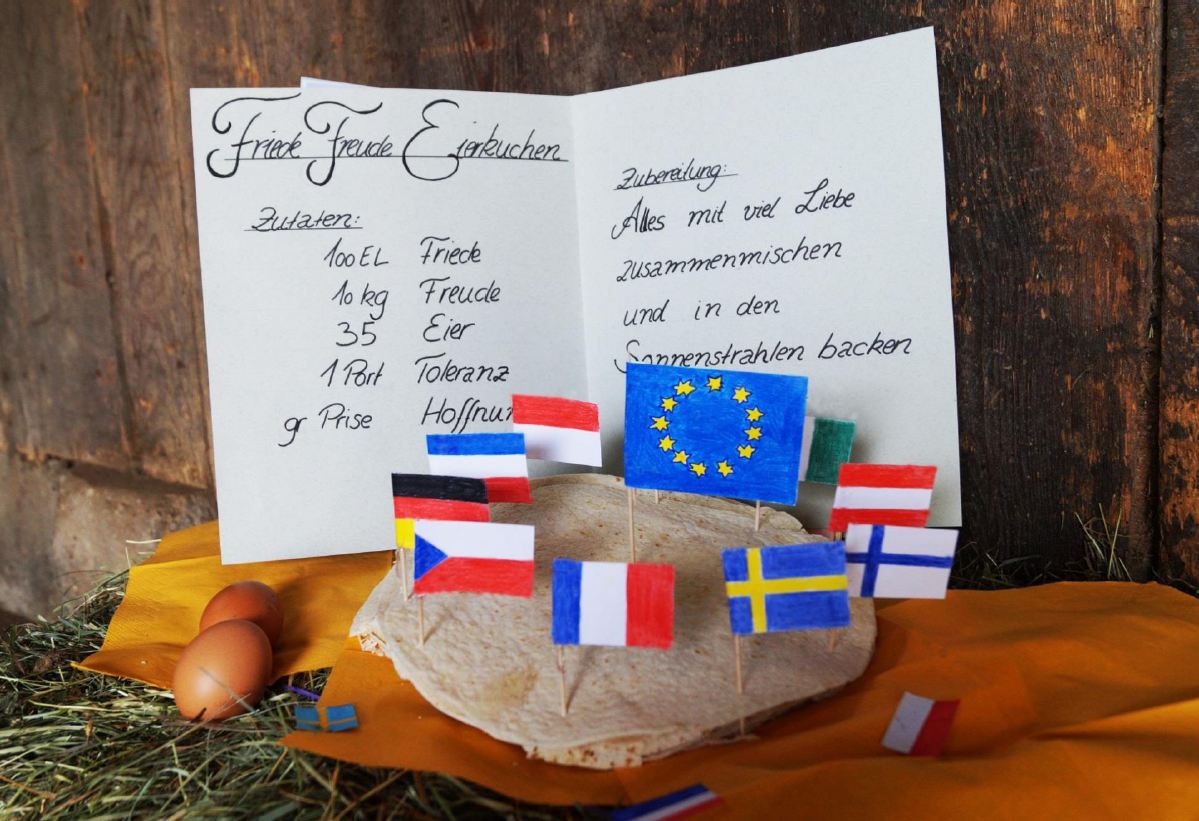 Friede Freude Eierkuchen
Zutaten:
100 EL Friede
10 kg Freude
35 Eier
1 Port Toleranz
gr Prise Hoffnun
Zubereitung:
Alles mit viel Liebe
zusammenmischen
und in den
Sonnenstrahlen backen